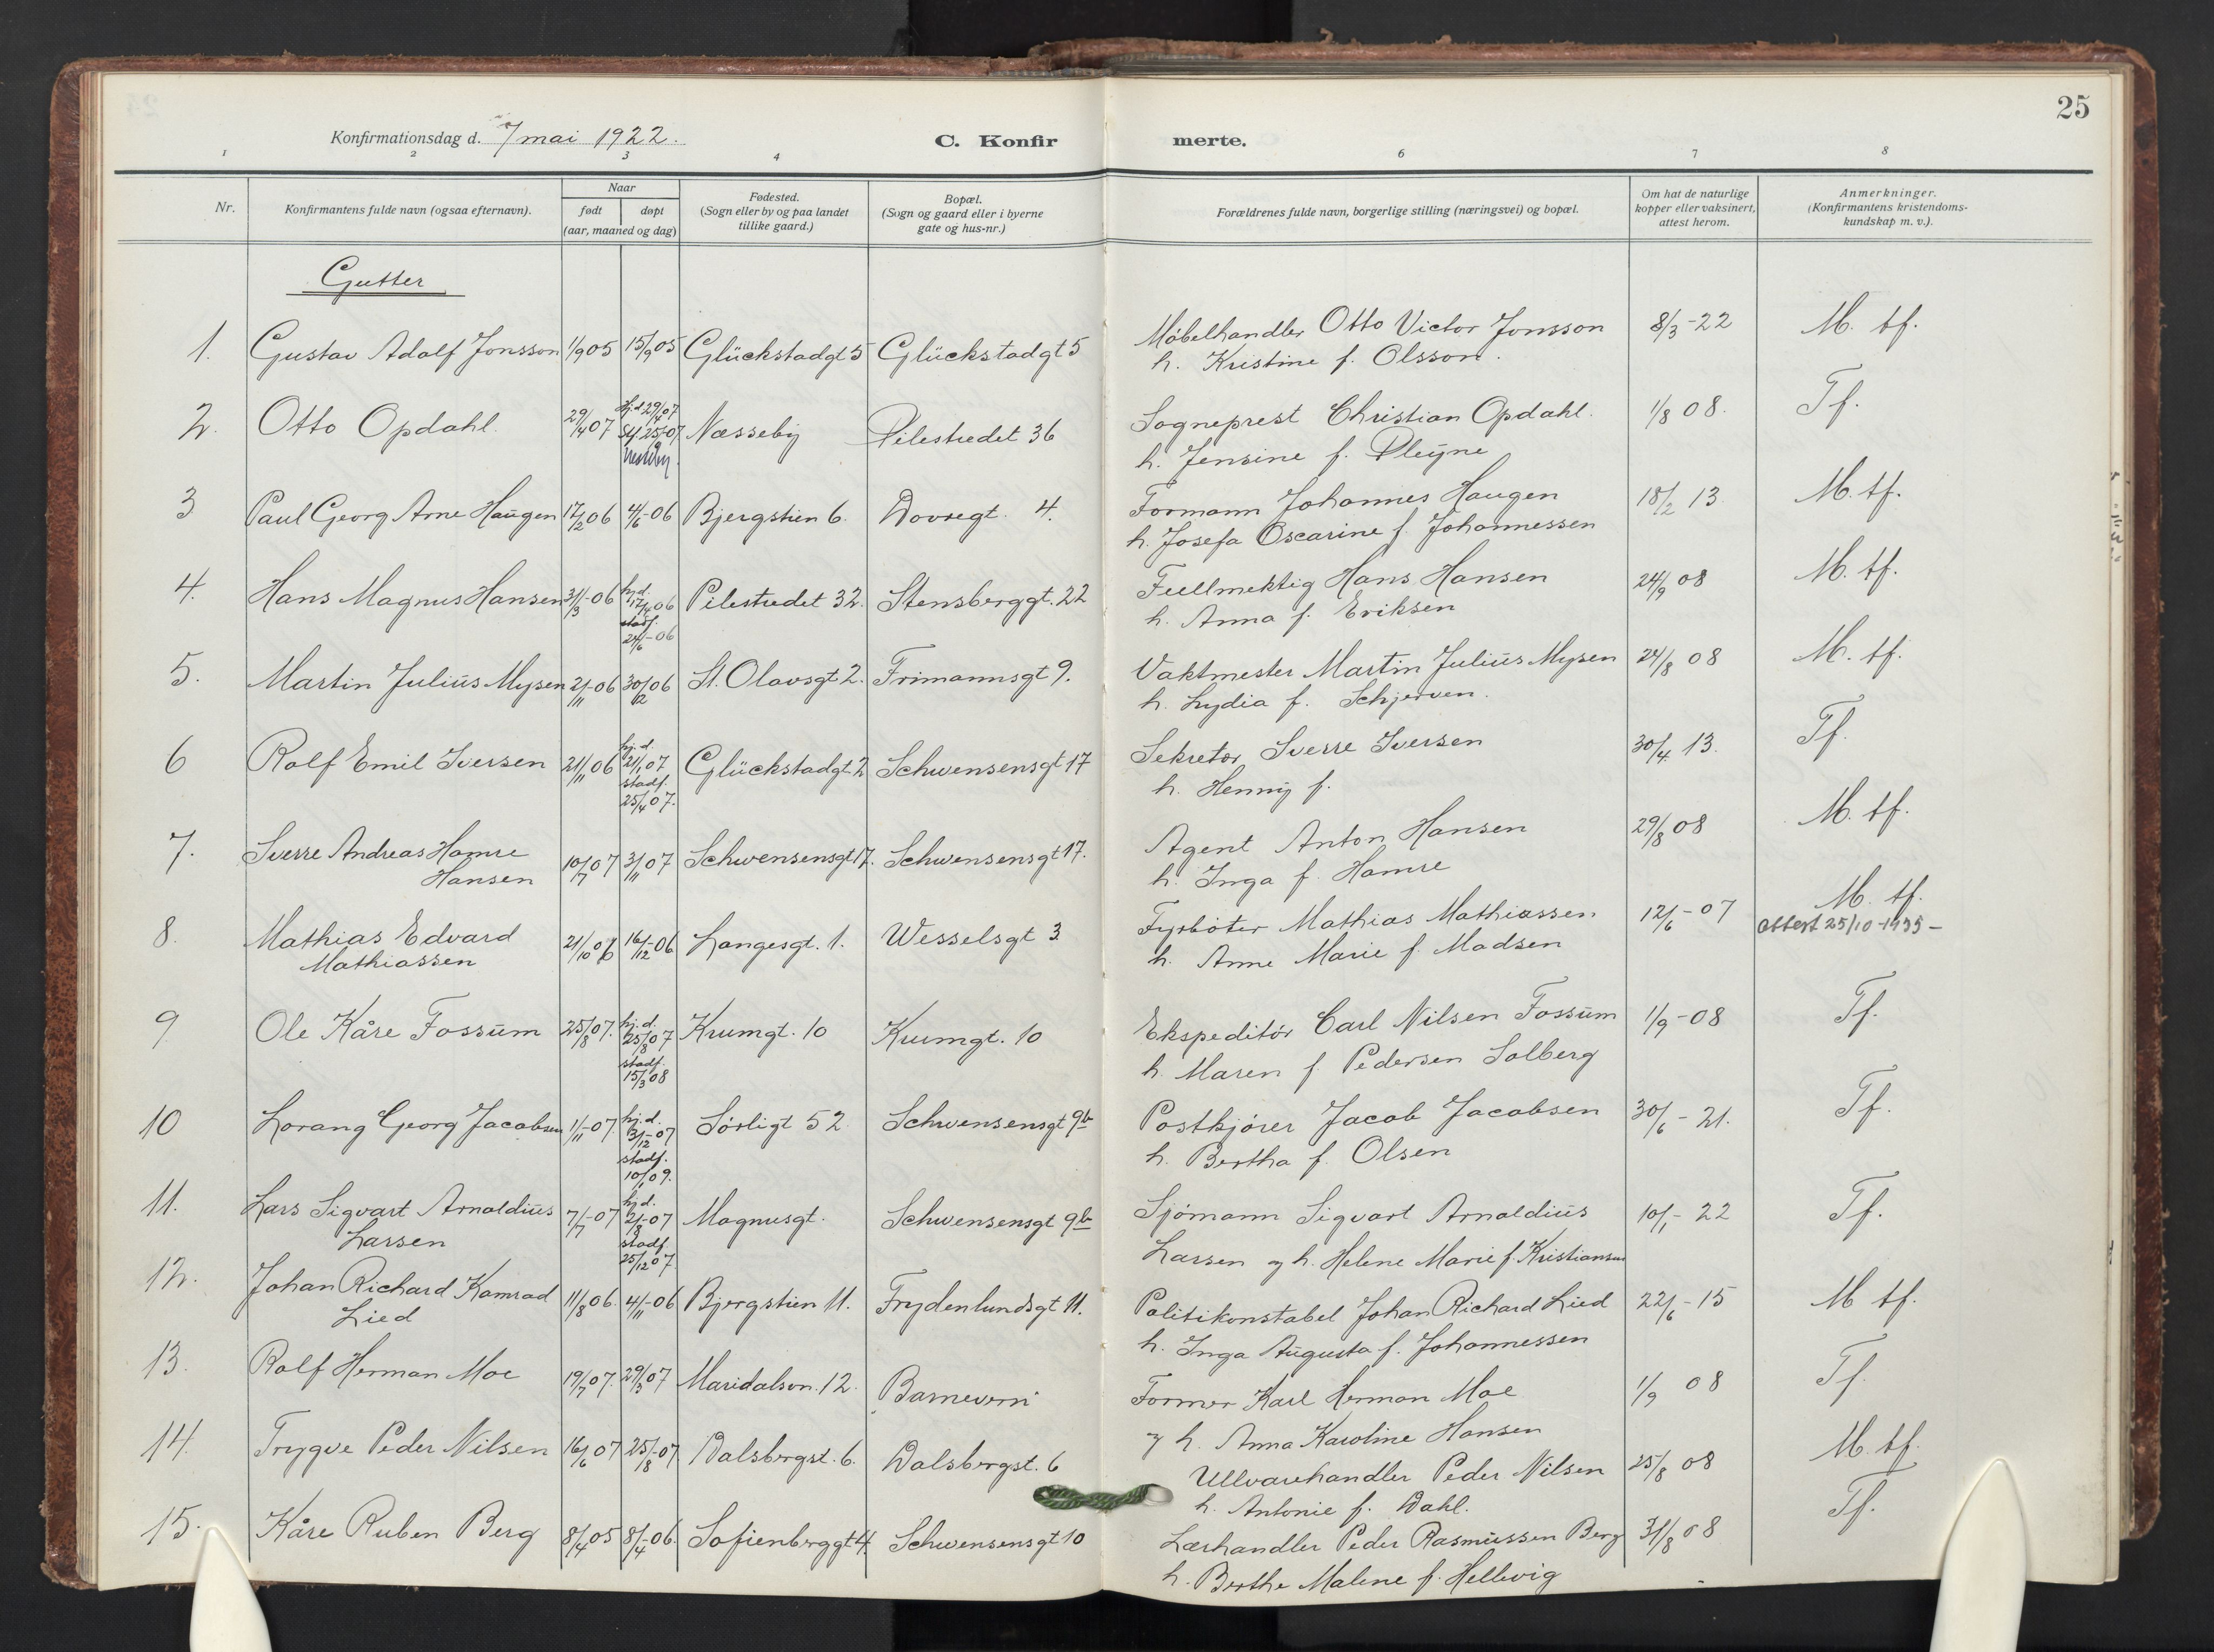 25
Konfirmationsdag d. 7 mai 1922.
C. Konfirmerte.
1 2 3 4 6 7 8
Nr.
Konfirmantens fulde navn (ogsaa efternavn).
Naar
født døpt
(aar, maaned og dag)
Fødested.
(Sogn eller by og paa landet
tillike gaard.)
Bopæl.
(Sogn og gaard eller i byerne
gate og hus-nr.)
Forældrenes fulde navn, borgerlige stilling (næringsvei) og bopæl.
Om hat de naturlige
kopper eller vaksinert,
attest herom.
Anmerkninger.
(Konfirmantens kristendoms-
kundskap m. v.).
Gutter
1. Gustav Adolf Jonsson 1/9 05 15/9 05 Glückstadgt 5 Glückstadgt 5 Møbelhandler Otto Victor Jonsson 8/3-22 M. tf.
h. Kristine f. Olsson.
2. Otto Opdahl. 29/4 07 Hj.d 29/4 07 Næsseby Pilestredet 36 Sogneprest Christian Opdahl. 1/8 08. Tf.
h. Jensine f. Pleyne
3 Paul Georg Arne Haugen 17/2 06 4/6-06 Bjergstien 6. Dovregt. 4. Formann Johannes Haugen 18/2 13. M. tf.
h. Josefa Oscarine f. Johannessen
4. Hans Magnus Hansen 31/3-06 hj.d. 17/4 06 Pilestredet 32. Stensberggt. 22 Fullmektig Hans Hansen 24/9 08 M. tf.
stadf. 24/6-06 h. Anna f. Eriksen
5. Martin Julius Mysen 2/11-06 30/12 06 St. Olavsgt 2. Frimannsgt 9. Vaktmester Martin Julius Mysen 24/8 08 M. tf.
h. Lydia f. Schjerven.
6 Rolf Emil Iversen 21/11 06 hj.d. 21/1 07 Glückstadgt 2 Schwensensgt 17 Sekretær Sverre Iversen 30/4 13. Tf.
stadf. 25/4 07. h. Henny f.
7. Sverre Andreas Hamre 10/7 07 3/11 07 Schwensensgt 17. Schwensensgt 17. Agent Anton Hansen 29/8 08 M. tf.
Hansen h. Inga f. Hamre
8. Mathias Edvard 21/10 06 16/12-06 Langesgt. 1. Wesselsgt 3. Fyrbøter Mathias Mathiassen 12/6-07 M. tf.
Mathiassen h. Anne Marie f. Madsen attest 25/10-1935-
9 Ole Kåre Fossum 25/8 07. hj.d. 25/8 07 Krumgt. 10 Krumgt. 10 Ekspeditør Carl Nilsen Fossum 1/9-08 Tf.
stadf. 15/3 08 h. Maren f. Pedersen Solberg
10 Lorang Georg Jacobsen 1/11-07. hj.d. 3/12-07 Sørligt 52 Schwensensgt 9b Postkjører Jacob Jacobsen 30/6-21. Tf.
stadf. 10/1 09. h. Bertha f. Olsen
11. Lars Sigvart Arnoldius 7/7-07 hj.d. 2/8-07 Magnusgt. Schwensensgt 9b Sjømann Sigvart Arnoldius 10/1-22 Tf.
Larsen stadf. 25/12 07. Larsen og h. Helene Marie f. Kristiansen
12. Johan Richard Konrad 11/8 06. 4/11-06 Bjergstien 11. Frydenlundsgt 11. Politikonstabel Johan Richard Lied 22/6-15 M tf.
Lied h. Inga Augusta f. Johannessen
13. Rolf Herman Moe 19/7 07. 29/3 07 Maridalsvn. 12. Barnevern Former Karl Herman Moe 1/9 08 Tf.
og h. Anna Karoline Hansen
14. Trygve Peder Nilsen 16/6 07 25/8-07 Dalsbergst. 6. Dalsbergst. 6 Ullvarehandler Peder Nilsen 25/8 08 M. tf.
h. Antonie f. Dahl.
15. Kåre Ruben Berg 8/4 05 8/4-06. Sofienberggt 4. Schwensensgt 10 Lærhandler Peder Rasmussen Berg 31/8 08 Tf.
h. Berthe Malene f. Hellevig